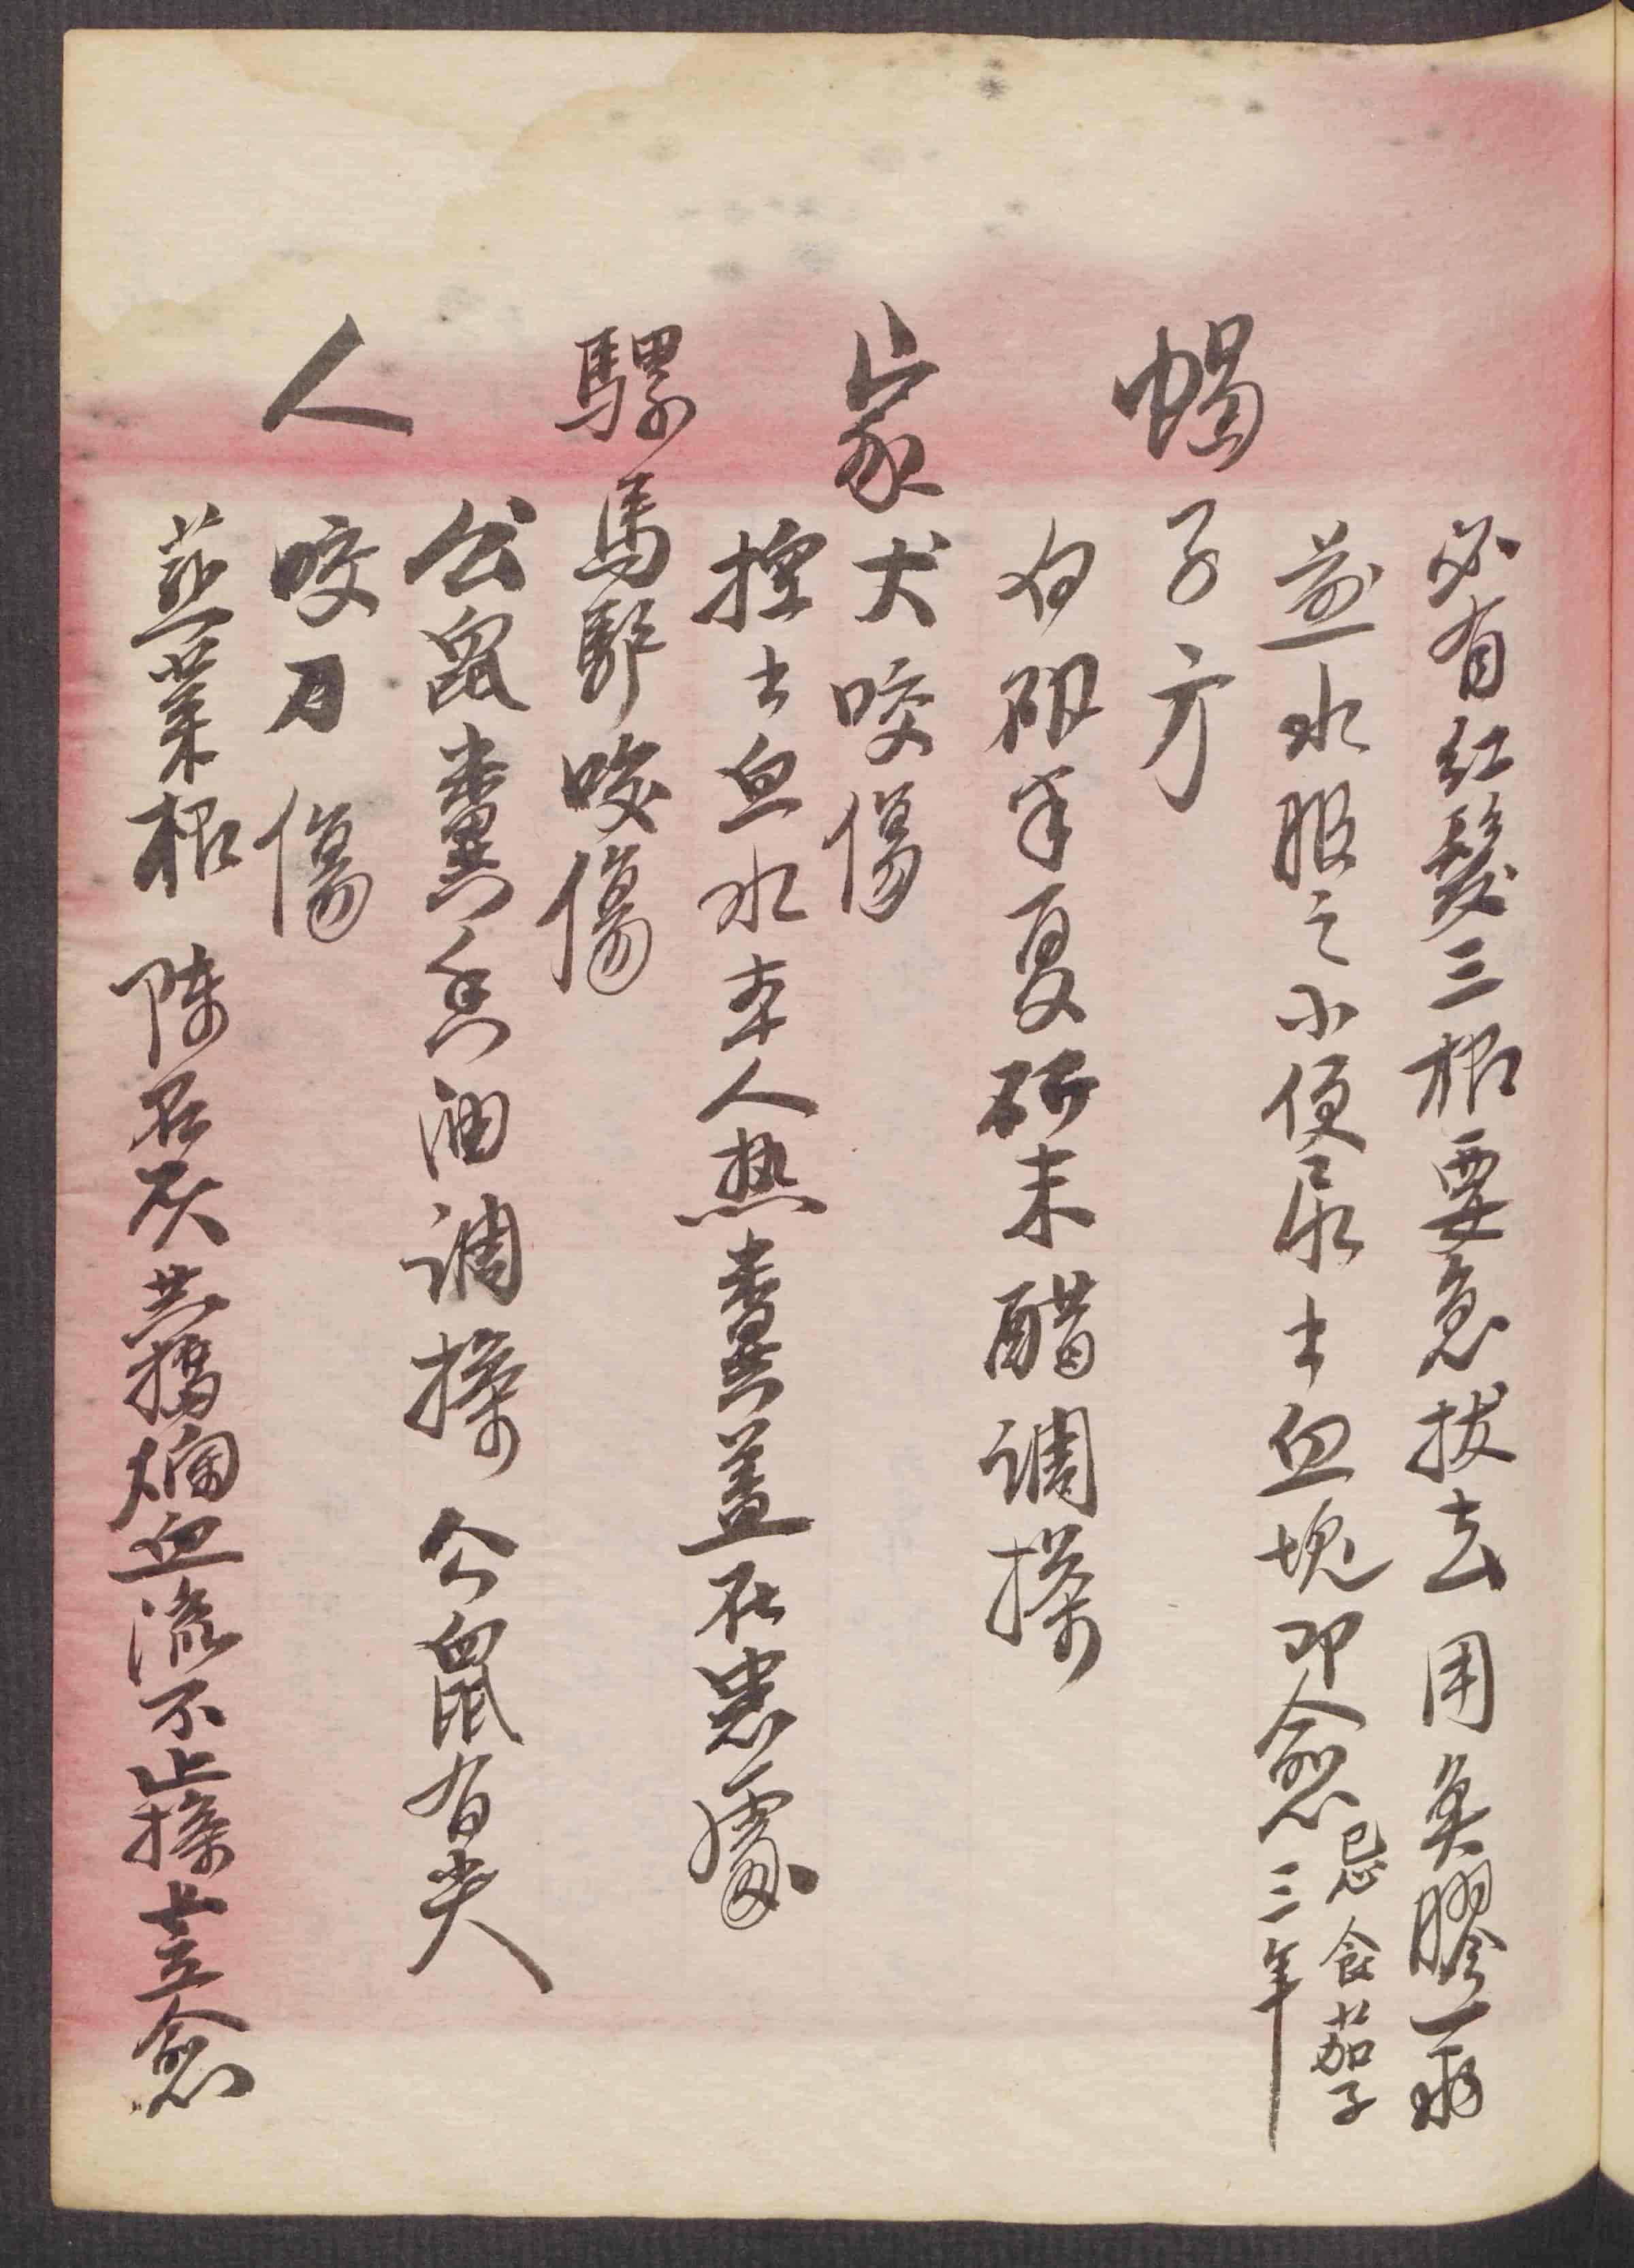 必有紅髮三根要急拔去用魚膠一兩
煎水服之小便尿出血塊即愈忌食茄子三年
蝎子方
白矾半夏研末醋調搽
家犬咬傷
控出血水本人热糞盖在患處
騾馬馿咬傷
公鼠糞香油調搽公鼠有尖
人咬刀傷
韮菜根陳石灰共搗爛血流不止搽上立愈